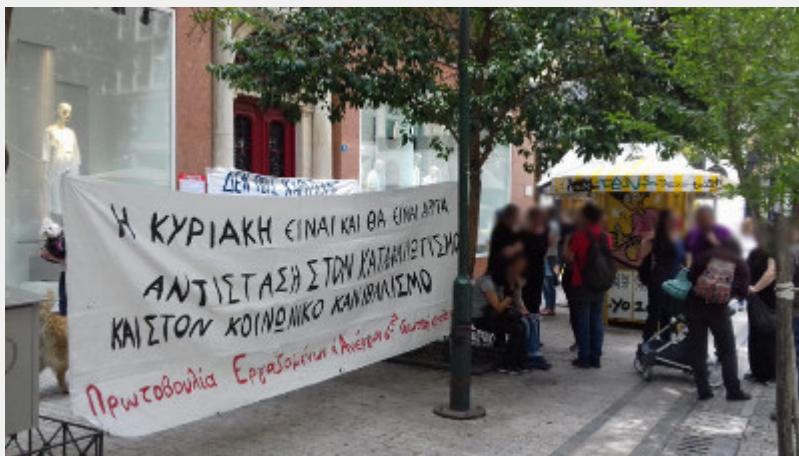 ΔΕΝ
Η ΚΥΡΙΑΚΗ ΕΙΝΑΙ ΚΑΙ ΘΑ ΕΙΝΑΙ ΑΡΓΙΑ
ΑΝΤΙΣΤΑΣΗ ΣΤΟΝ ΚΑΤΑΝΑΛΩΤΙΣΜΟ
ΚΑΙ ΣΤΟΝ ΚΟΙΝΩΝΙΚΟ ΚΑΝΙΒΑΛΙΣΜΟ
Πρωτοβουλία Εργαζομένων & Ανέργων